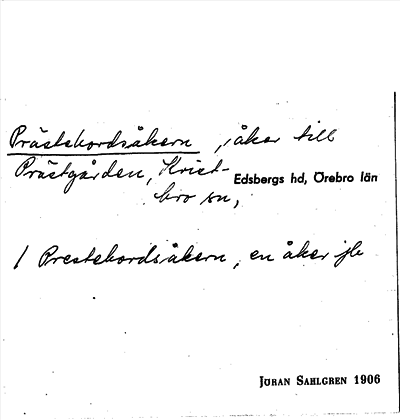 Prästebordsåkern, åker till
Prästgården, Krist-
bro sn, Edsbergs hd, Örebro län
/ Prestebordsåkern, en åker jb
JÖRAN SAHLGREN 1906